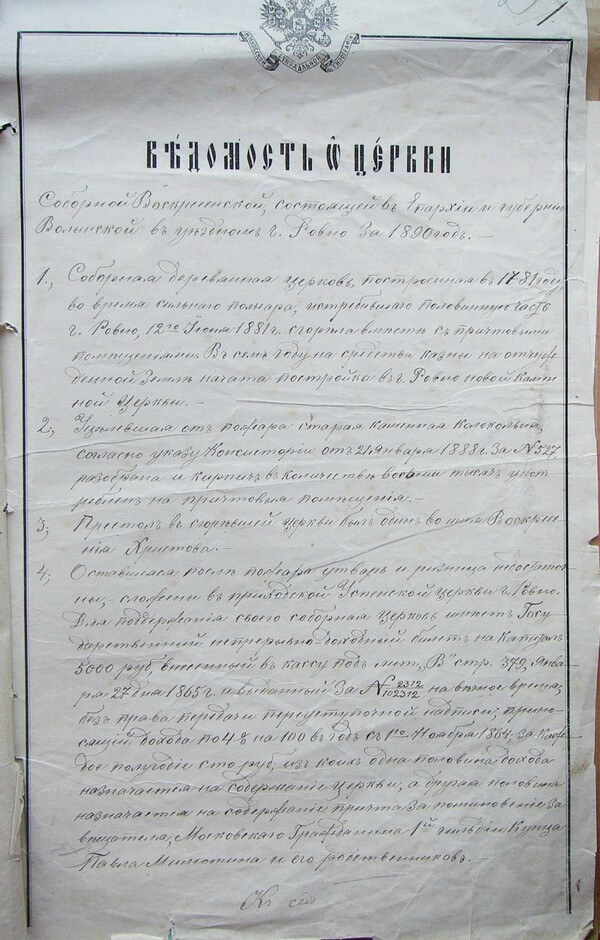 ВѢДОМОСТЬ Ѡ ЦЕРКВИ
Соборной Воскресенской, состоящей въ Епархіи и губерніи
Волынской въ уѣздномъ г. Ровно За 1890 годъ. —
1., Соборная деревянная церковь, построенная въ 1781 году,
во время сильнаго пожара, истребившаго половинную часть
г. Ровно, 12го Іюня 1881 г. сгорѣла вмѣстѣ съ причтовыми
помѣщеніями. Въ семъ году на средства казны на отчуж-
денной Землѣ начата постройка въ г. Ровно новой Камен
ной Церкви. —
2., Уцѣлѣвшая отъ пожара старая каменная Колокольня,
согласно указу Консисторіи отъ 21 Января 1888 г. За № 527
разобрана и кирпичъ въ количествѣ восьми тысячъ упот
ребленъ на причтовыя помѣщенія. —
3; Престолъ въ сгорѣвшей церкви былъ одинъ во имя Воскресе
нія Христова. —
4; Оставшаяся послѣ пожара утварь и ризница недостаточ
ны, сложены въ приходской Успенской церкви г. Ровно.
Для поддержанія своего соборная церковь имѣетъ Госу
дарственный непрерывно-доходный билетъ на Капиталъ
5000 руб, внесенный въ кассу подъ лит. „В" стр. 379, Янва
ря 27 дня 1865 г. и выданный За № 2312/102312 на вѣчное время,
безъ права передачи переуступочной надписи, прино-
сящій дохода по 4% на 100 въ годъ съ 1го Ноября 1864. За Каж-
дое полугодіе сто руб; изъ коихъ одна половина дохода
назначается на содержаніе церкви, а другая половина
назначается на содержаніе причта За поминовеніе За
вѣщателя, Московскаго Гражданина 1й гильдіи Купца
Павла и его родственниковъ. —
Къ сей